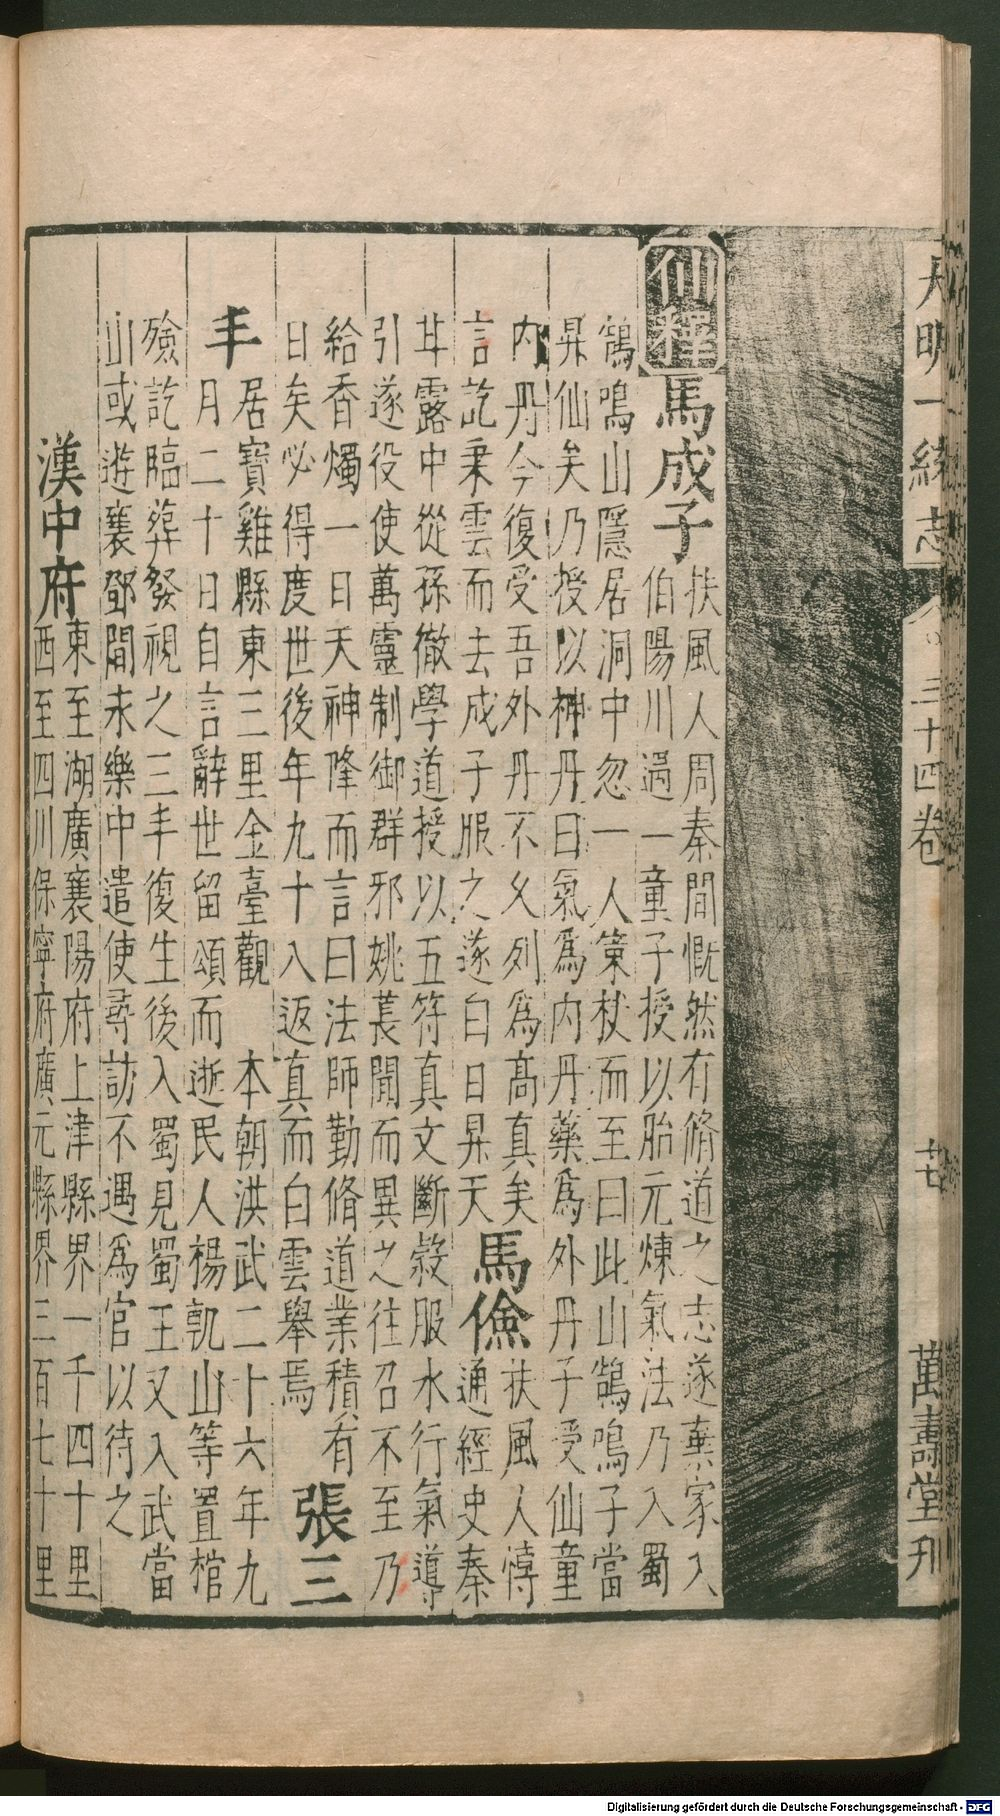 大明一統志
三十四卷
廿
萬壽堂刊
仙釋
馬成子
扶風人周秦間慨然有脩道之志遂棄家入
伯陽川過一童子授以胎元煉氣法乃入蜀
鶴鳴山隱居洞中忽一人策杖而至曰此山鶴鳴子當
昇仙矣乃授以神丹曰氣爲内丹藥爲外丹子受仙童
内丹今復受吾外丹不久列爲高真矣
言訖乗雲而去成子服之遂白日昇天
馬儉
扶風人
通經史秦
甘露中從孫徹學道授以五符真文斷榖服水行氣導
引遂役使萬靈制御群邪姚萇聞而異之往召不至乃
給香燭一日天神降而言曰法師勤脩道業積有
日矣必得度世後年九十八返真而白雲舉焉
張三
丰
居寳雞縣東三里金臺觀 本朝洪武二十六年九
月二十日自言辭世留頌而逝民人楊軏山等置棺
殮訖臨葬發視之三丰復生後入蜀見蜀王又入武當
山或遊襄鄧間永樂中 遣使尋訪不遇爲官以待之
漢中府
東至湖廣襄陽府上津縣界一千四十里
西至四川保寧府廣元縣界三百七十里
Digitalisierung gefördert durch die Deutsche Forschungsgemeinschaft - DFG